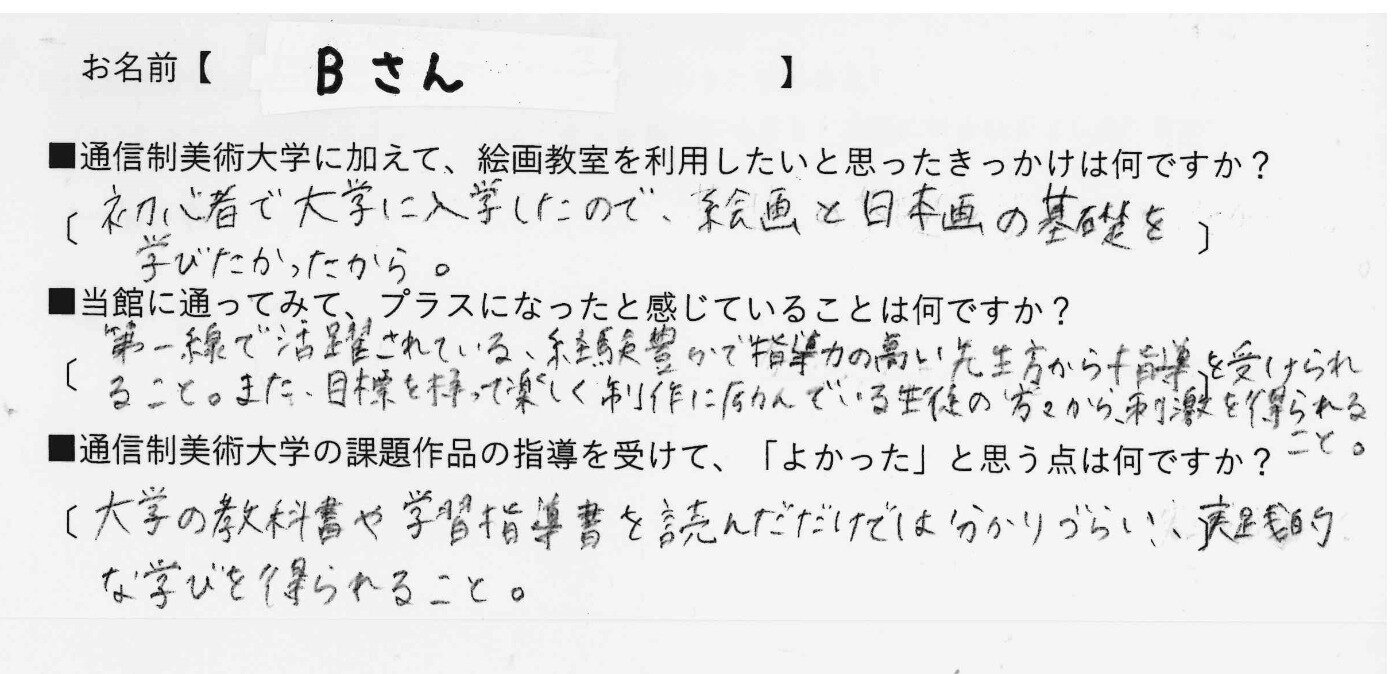 お名前【 Bさん 】
■通信制美術大学に加えて、絵画教室を利用したいと思ったきっかけは何ですか？
〔 初心者で大学に入学したので、絵画と日本画の基礎を 〕
学びたかったから。
■当館に通ってみて、プラスになったと感じていることは何ですか？
第一線で活躍されている、経験豊かで指導力の高い先生方から指導を受けられ
〔 ること。また、目標を持って楽しく制作に励んでいる生徒の方々から、刺激を得られる
こと。
■通信制美術大学の課題作品の指導を受けて、「よかった」と思う点は何ですか？
〔 大学の教科書や学習指導書を読んだだけでは分かりづらい、実践的 〕
な学びを得られること。